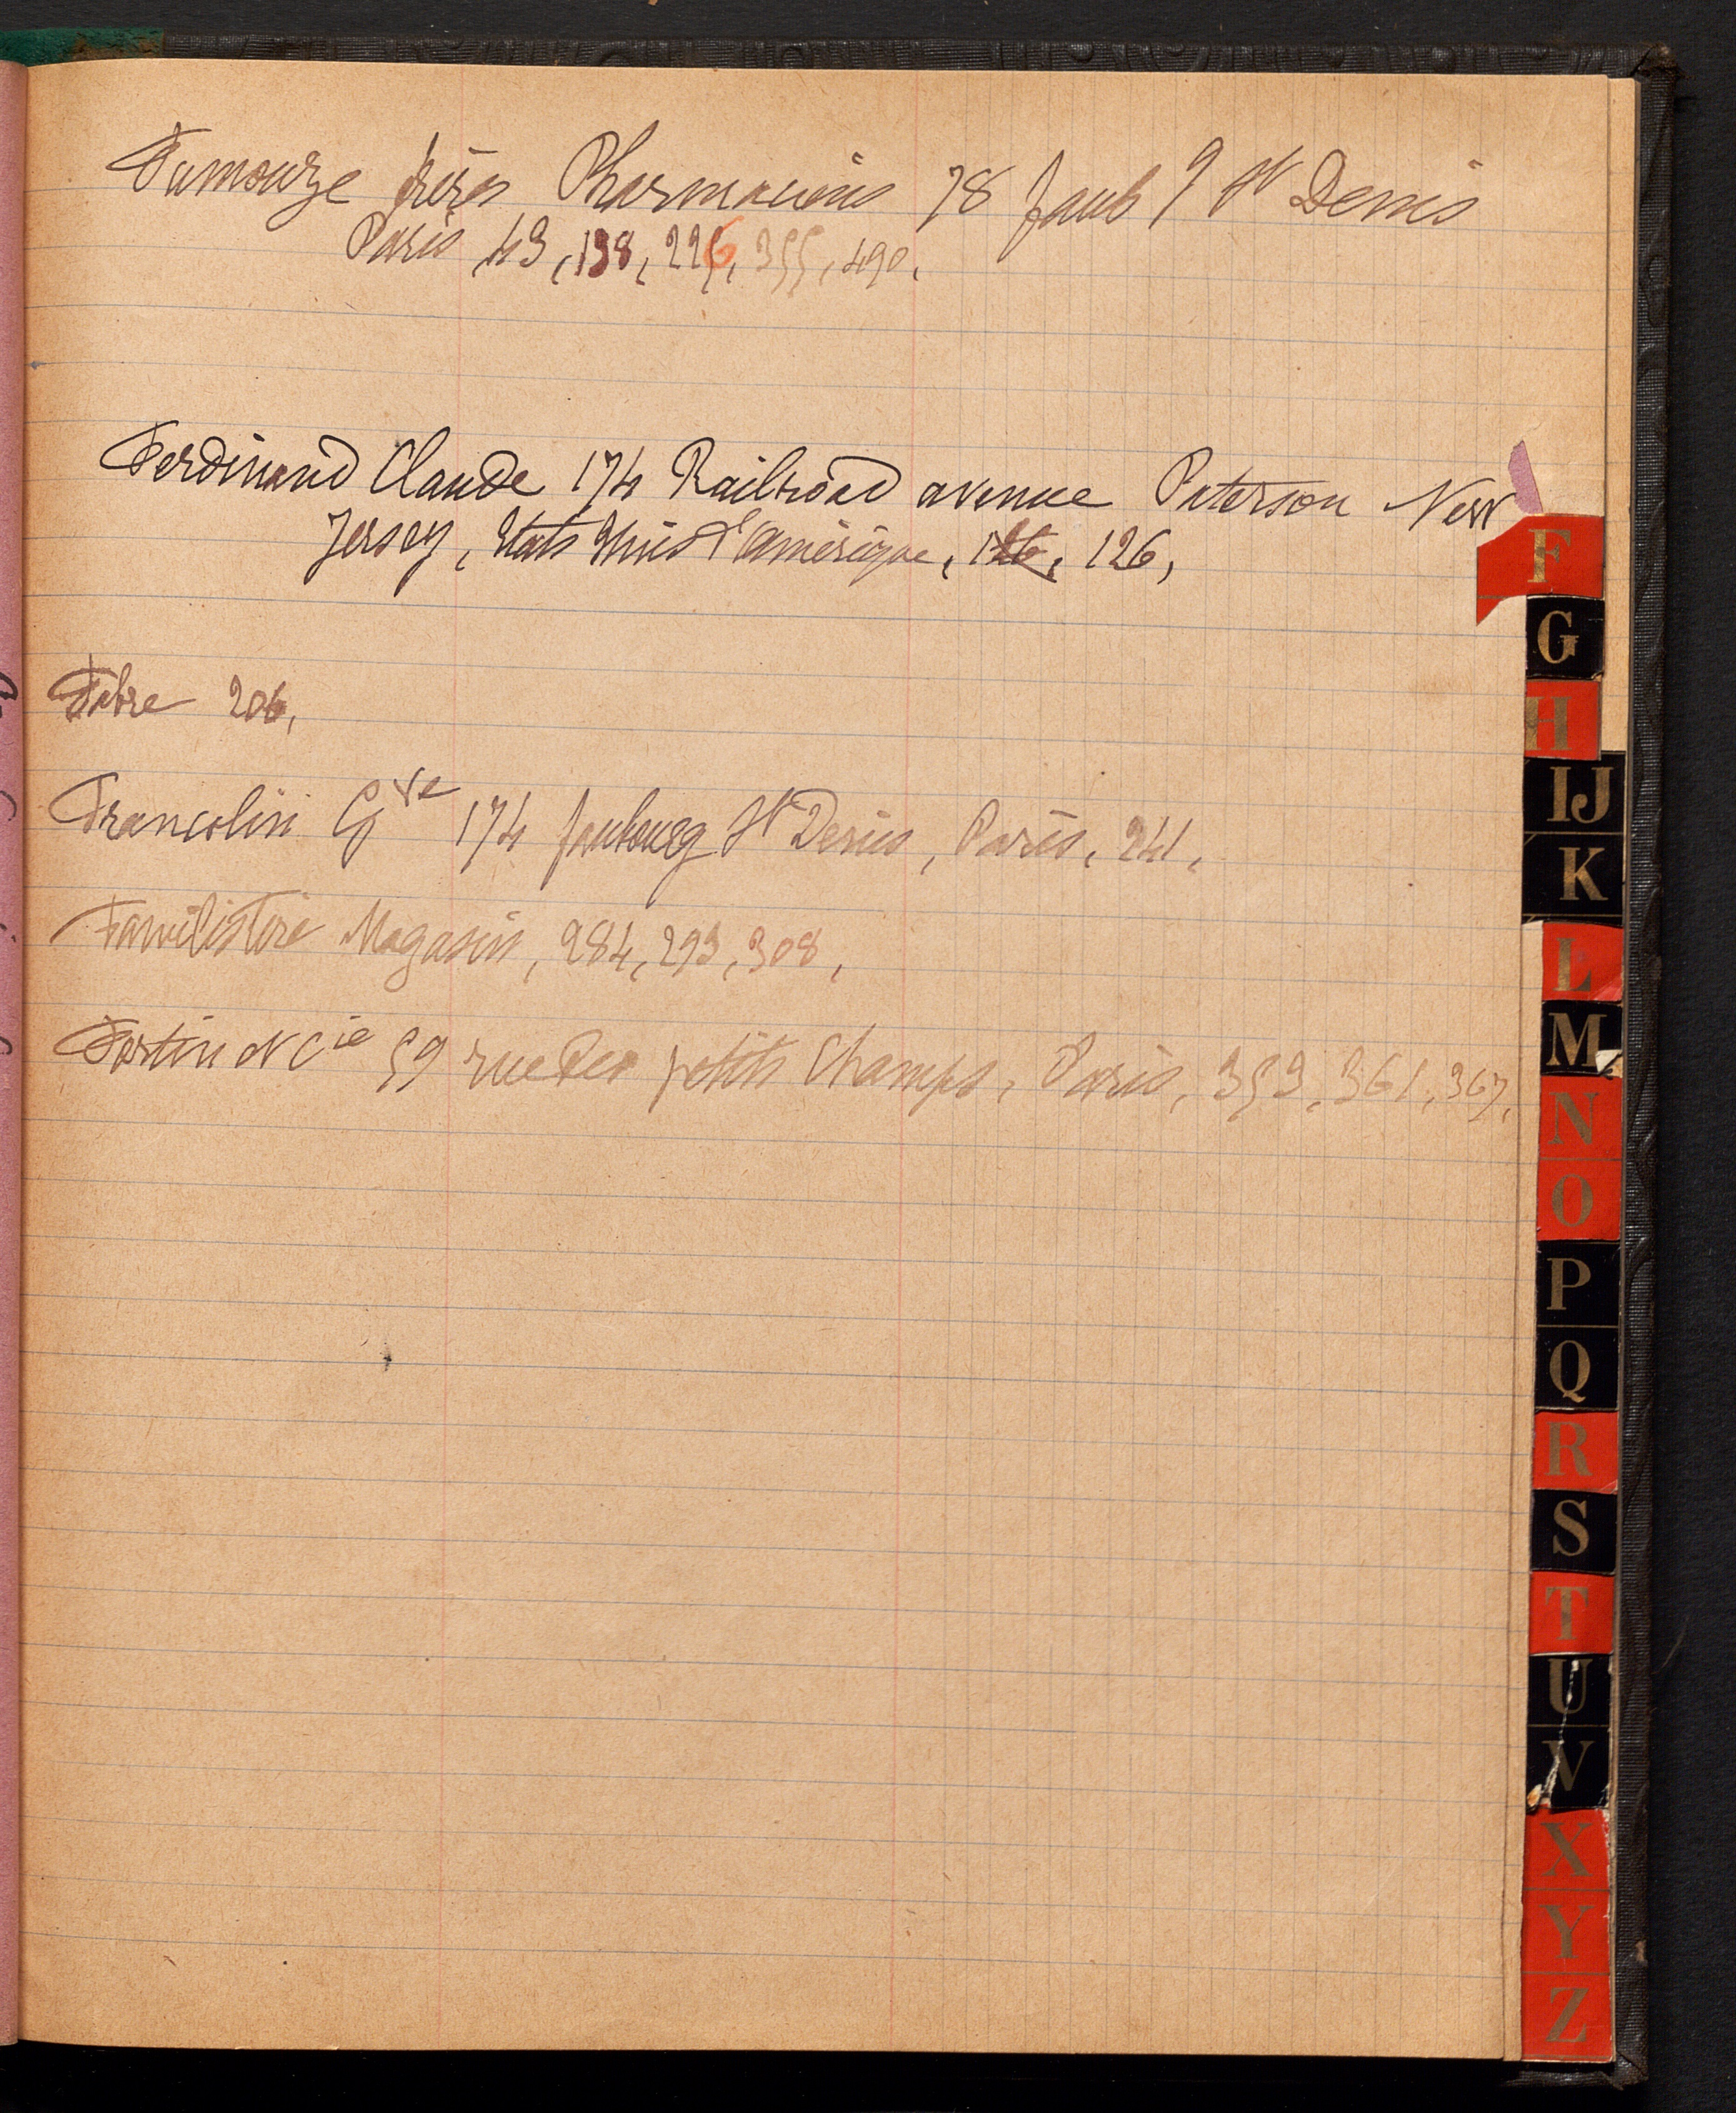 Fumouze frères Pharmaciens 78 faub g St Denis
Paris 43, 138, 226, 355, 490,
Ferdinand Claude 174 Railroad avenue Paterson New
Jersey, Etats Unis d'amérique, 126, 126,
Fabre 206,
Francolin Gve 174 faubourg St Denis, Paris, 241,
Familistère Magasin, 284, 293, 308,
Fortin et Cie 59 rue des petits Champs, Paris, 353, 361, 367,
F
G
H
IJ
K
L
M
N
O
P
Q
R
S
T
U
V
X
Y
Z